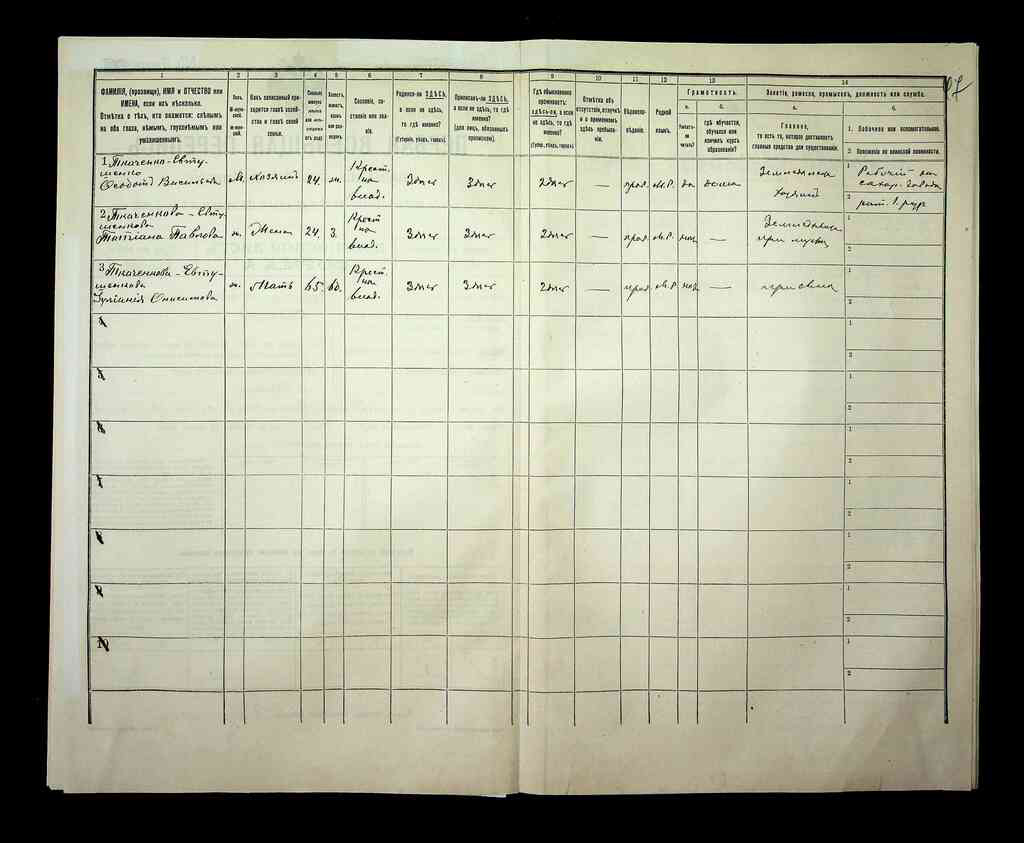 67
1
2
3
4
5
6
7
8
9
10
11
12
13
14
ФАМИЛІЯ, (прозвище), ИМЯ и ОТЧЕСТВО или
ИМЕНА, если ихъ нѣсколько.
Отмѣтка о тѣхъ, кто окажется: слѣпымъ
на оба глаза, нѣмымъ, глухонѣмымъ или
умалишеннымъ.
Полъ.
Какъ записанный при-
ходится главѣ хозяй-
ства и главѣ своей
семьи.
Сословіе, со-
стояніе или зва-
ніе.
Родился-ли ЗДѢСЬ,
а если не здѣсь,
то гдѣ именно?
(Губернія, уѣздъ, городъ).
Приписанъ-ли ЗДѢСЬ,
а если не здѣсь, то гдѣ
именно?
(для лицъ, обязанныхъ
припиской).
Гдѣ обыкновенно
проживаетъ:
здѣсь-ли, а если
не здѣсь, то гдѣ
именно?
(Губер., уѣздъ, городъ).
Отмѣтка объ
отсутствіи, отлучкѣ
и о временномъ
здѣсь пребыва-
ніи.
Вѣроиспо-
вѣданіе.
Родной
языкъ.
Грамотность.
а.
Умѣетъ-
ли
читать?
б.
гдѣ обучается,
обучался или
кончилъ курсъ
образованія?
Занятіе, ремесло, промыселъ, должность или служба.
а.
Главное,
то есть то, которое доставляетъ
главныя средства для существованія.
б.
1. Побочное или вспомогательное.
2. Положеніе по воинской повинности.
1 Ткаченко-Евту-
шенко
Ѳеодотъ Васильевъ
м.
хозяинъ
24.
ж.
Крест.
на
влад.
Здѣсь
Здѣсь
Здѣсь
—
прав.
м.Р.
да
дома
хозяинъ
1
Рабочій на
сахар. заводѣ
2
2 Ткаченкова-Евту-
шенкова
Татіана Павлова
ж.
Жена
24.
з.
Крест
на
влад.
Здѣсь
Здѣсь
Здѣсь
—
прав.
м.Р.
нѣтъ
—
при мужѣ
1
2
3 Ткаченкова-Евту-
шенкова
Онисимова
ж.
Мать
65.
вд.
Крест.
на
влад.
Здѣсь
Здѣсь
Здѣсь
—
прав.
м.Р.
нѣтъ
—
при сынѣ
1
2
4
1
2
5
1
2
6
1
2
7
1
2
8
1
2
9
1
2
10
1
2